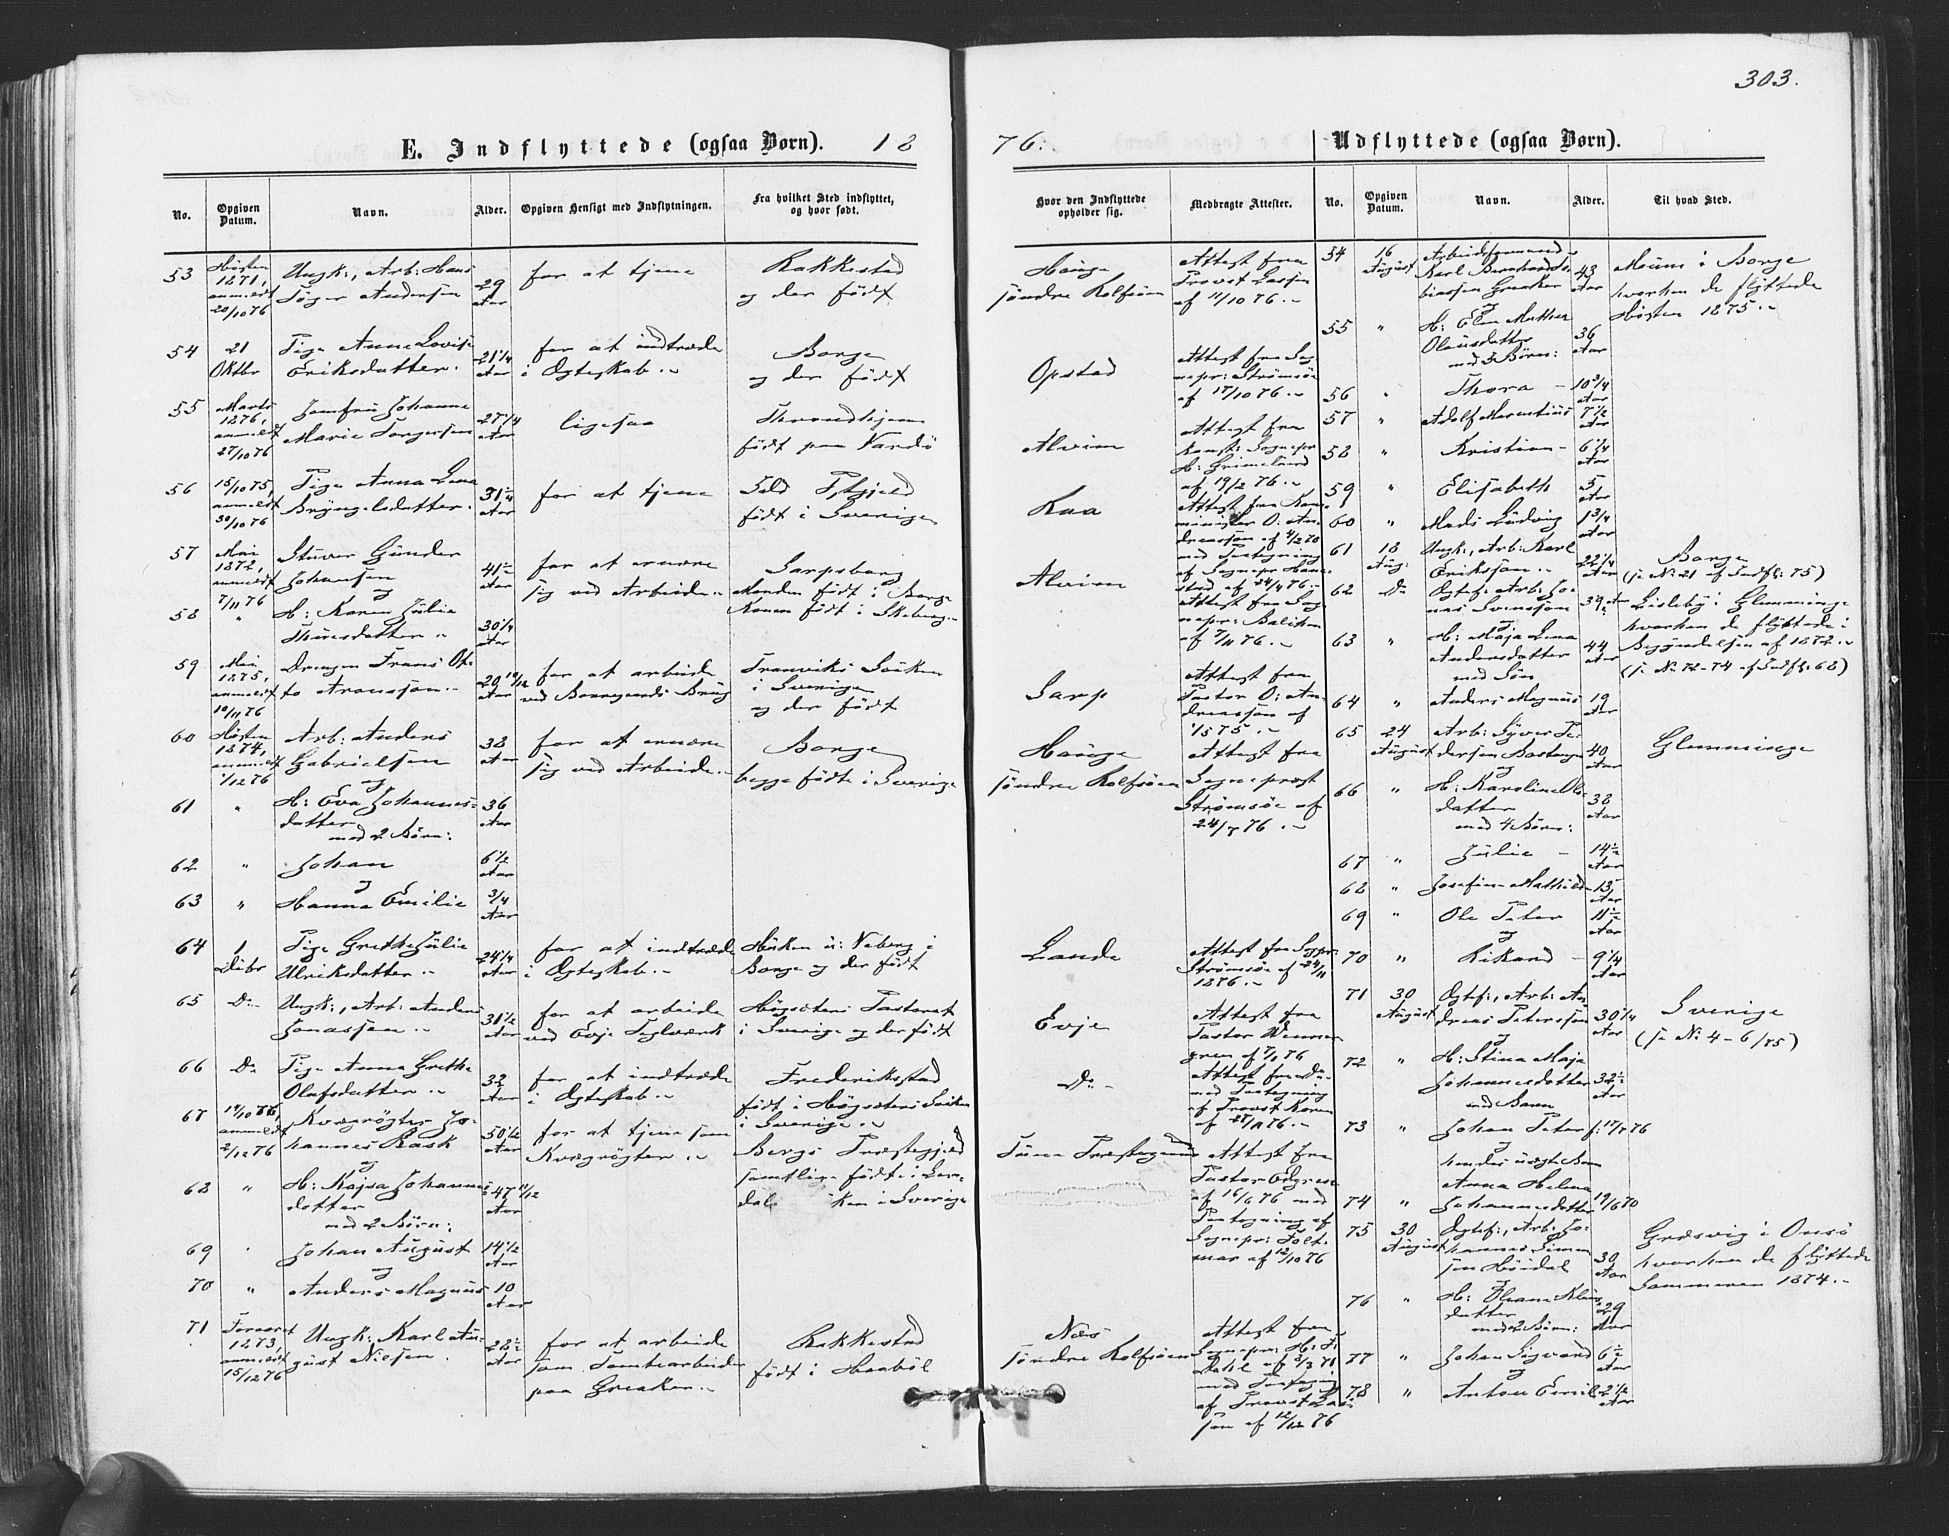 303.
E. Indflyttede (ogsaa Børn). 18
76.
Udflyttede (ogsaa Børn).
No.
Opgiven Datum.
Navn.
Alder.
Opgiven Hensigt med Indflytningen.
Fra hvilket Sted indflyttet, og hvor født.
Hvor den Indflyttede opholder sig.
Medbragte Attester.
No.
Opgiven Datum.
Navn.
Alder.
Til hvad Sted.
53
Høsten
1871,
anmeldt
20/10 76
Ungk:, Arb: Hans
Andersen
29
Aar
for at tjene
Rakkestad
og der født
Hauge
søndre Rolfsøen
Attest fra
Provst Lassen
af 11/10 76.
54
21
Oktbr
Pige Anne Lovise
Eriksdatter.
21 1/4
Aar
for at indtræde
i Ægteskab.
Borge
og der født
Opstad
Attest fra Sog-
nepr: Strømsøe
af 17/10 76.
55
Marts
1876,
anmeldt
27/10 76
Jomfru Johanne
Marie Torgersen
27 1/4
Aar
ligesaa
Throndhjem
født paa Vardö
Alvim
Attest fra
Sognepr
H: Grimelund
af 19/2 76.
56
15/10 75,
anmeldt
30/10 76
Pige Anna Lena
Bryngelsdatter.
31 1/4
Aar
for at tjene
Id
født i Sverige
Kaa
Attest fra
O: An-
dreassen
med Paategning
af Sognepr
af 24/4 76.
57
Mai
1872,
anmeldt
7/11 76
Stuver Gunder
Johansen
og
41 1/2
Aar
for at ernære
sig ved Arbeide.
Sarpsborg
Manden født i Borge
Konen født i Skeberg.
Alvim
Attest fra Sog-
nepr:
af 7/11 76.
58
"
H: Karen Julie
Thuesdatter
30 1/4
Aar
59
Mai
1875,
anmeldt
10/11 76
Drengen Frans Ot-
to Aronsson.
20 10/12
Aar
for at arbeide
ved Borregaards Brug
Tranviks Socken
i Sverige
og der født
Sarp
Attest fra
Pastor O: An-
dreassen af
1875.
60
Høsten
1874,
anmeldt
1/12 76
Arb: Anders
Gabrielsen
og
38
Aar
for at ernære
sig ved Arbeide.
Borge
begge fødte i Sverige
Hauge
søndre Rolfsøen
Attest fra
Sognepræst
Strømsøe af
76.
61
"
H: Eva Johannes-
datter
med 2 Børn:
36
Aar
62
"
Johan
og
6 1/2
Aar
63
"
Hanna Emilie
3/4
Aar
64
1
Debr
Pige Grethe Julie
Ulriksdatter
24 1/4
Aar
for at indtræde
i Ægteskab.
Høken u: Neberg i
Borge og der født
Lande
Attest fra Sogpr
Strømsøe af 24/11
1876.
65
Do
Ungk:, Arb: Anders
Jonassen
31 1/2
Aar
for at arbeide
ved Evje Teglværk
Högsäters Pastorat
i Sverige og der født
Evje
Attest fra
Pastor Wenner-
gren af 76
66
Do
Pige Anna Grethe
Olafsdatter
32
Aar
for at indtræde
i Ægteskab.
Frederiksstad
født i Högsäters Socken
i Sverige.
Do
Attest fra Do
med Paategning
af Provst Koren
af 76.
67
14/10 76,
anmeldt
2/12 76
Kvægrögter Jo-
hannes Rask
og
50 1/2
Aar
for at tjene som
Kvægrögter
Bergs Præstegjeld
samtlige født i
Sverige
Tune Præstegaard
Attest fra
Pastor
af 16/6 76 med
Paategning af
Sognepr:
af 12/10 76
68
"
H: Kajsa Johannes-
datter
med 2 Børn:
47 11/12
Aar
69
"
Johan August
og
14 1/2
Aar
70
"
Anders Magnus
10
Aar
71
Foraaret
1873,
anmeldt
15/12 76
Ungk: Karl Au-
gust Nielsen.
28 1/2
Aar
for at arbeide
som Tomtearbeider
paa Greaker.
Rakkestad
født i Haabøl
Næs
søndre Rolfsøen
Attest fra
Sognepr: H: F:
af 3/3 71
med Paategning
af Provst Las-
sen af 12/12 76
54
16
August
Arbeidsformand
Karl Bernhard
Greaker
og
43
Aar
Moum i Borge
hvorhen de flyttede
Høsten 1875.
55
"
H: Elen Mathea
Olausdatter
med 5 Børn:
36
Aar
56
"
Thora
10 3/4
Aar
57
"
Adolf Marentius
7 1/2
Aar
58
"
Kristian
6 1/4
Aar
59
"
Elisabeth
5
Aar
60
"
Mads Ludvig
1 3/4
Aar
61
18
Aug:
Ungk:, Arb: Karl
Eriksson
22 1/4
Aar
Borge
(se No 21 af Indfl: 75)
62
Do
Ægtef: Arb: Jo-
nas Svensson
og
39
Lisleby i Glemminge
hvorhen de flyttede i
Begyndelsen af 1872.
(se No 72-74 af Indfl: 68)
63
"
H: Maja Lena
Andersdatter
med Søn
44
Aar
64
"
Anders Magnus
19
Aar
65
24
August
Arb: Syver Pe-
dersen
og
40
Aar
Glemminge
66
"
H: Karoline Ols-
datter
med 4 Børn:
38
Aar
67
"
Julie
14 1/2
Aar
68
"
Josefine Mathilde
13
Aar
69
"
Ole Peter
og
11 1/2
Aar
70
"
Rikard
9 1/4
Aar
71
30
August
Ægtef:, Arb: An-
dreas Petersson
og
30 1/4
Aar
Sverige
(se No 4-6/75)
72
"
H: Stina Maja
Johannesdatter
med Barn
32 1/2
Aar
73
"
Johan Peter
og
f: 17/7 76
hendes uægte Barn
74
"
Anna Helena
Johannesdatter
19/6 70
75
30
August
Ægtef:, Arb: Jo-
hannes Simen-
sen Høidal
og
30
Aar
Græsvig i Onsö
hvorhen de flyttede
Sommeren 1874.
76
"
H:
datter
med 2 Børn:
29
Aar
77
"
Johan Sigvard
og
6 1/2
Aar
78
"
Anton Emil
2 1/2
Aar